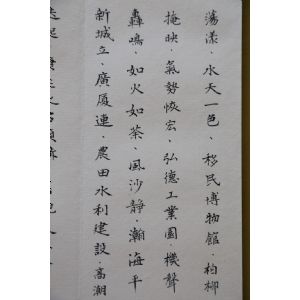 蕩漾、水天一色、移民博物館、柏柳
掩映、氣勢恢宏、弘德工業園、機聲
轟鳴、如火如荼、風沙靜、瀚海平
新城立、廣厦連、農田水利建設、高潮